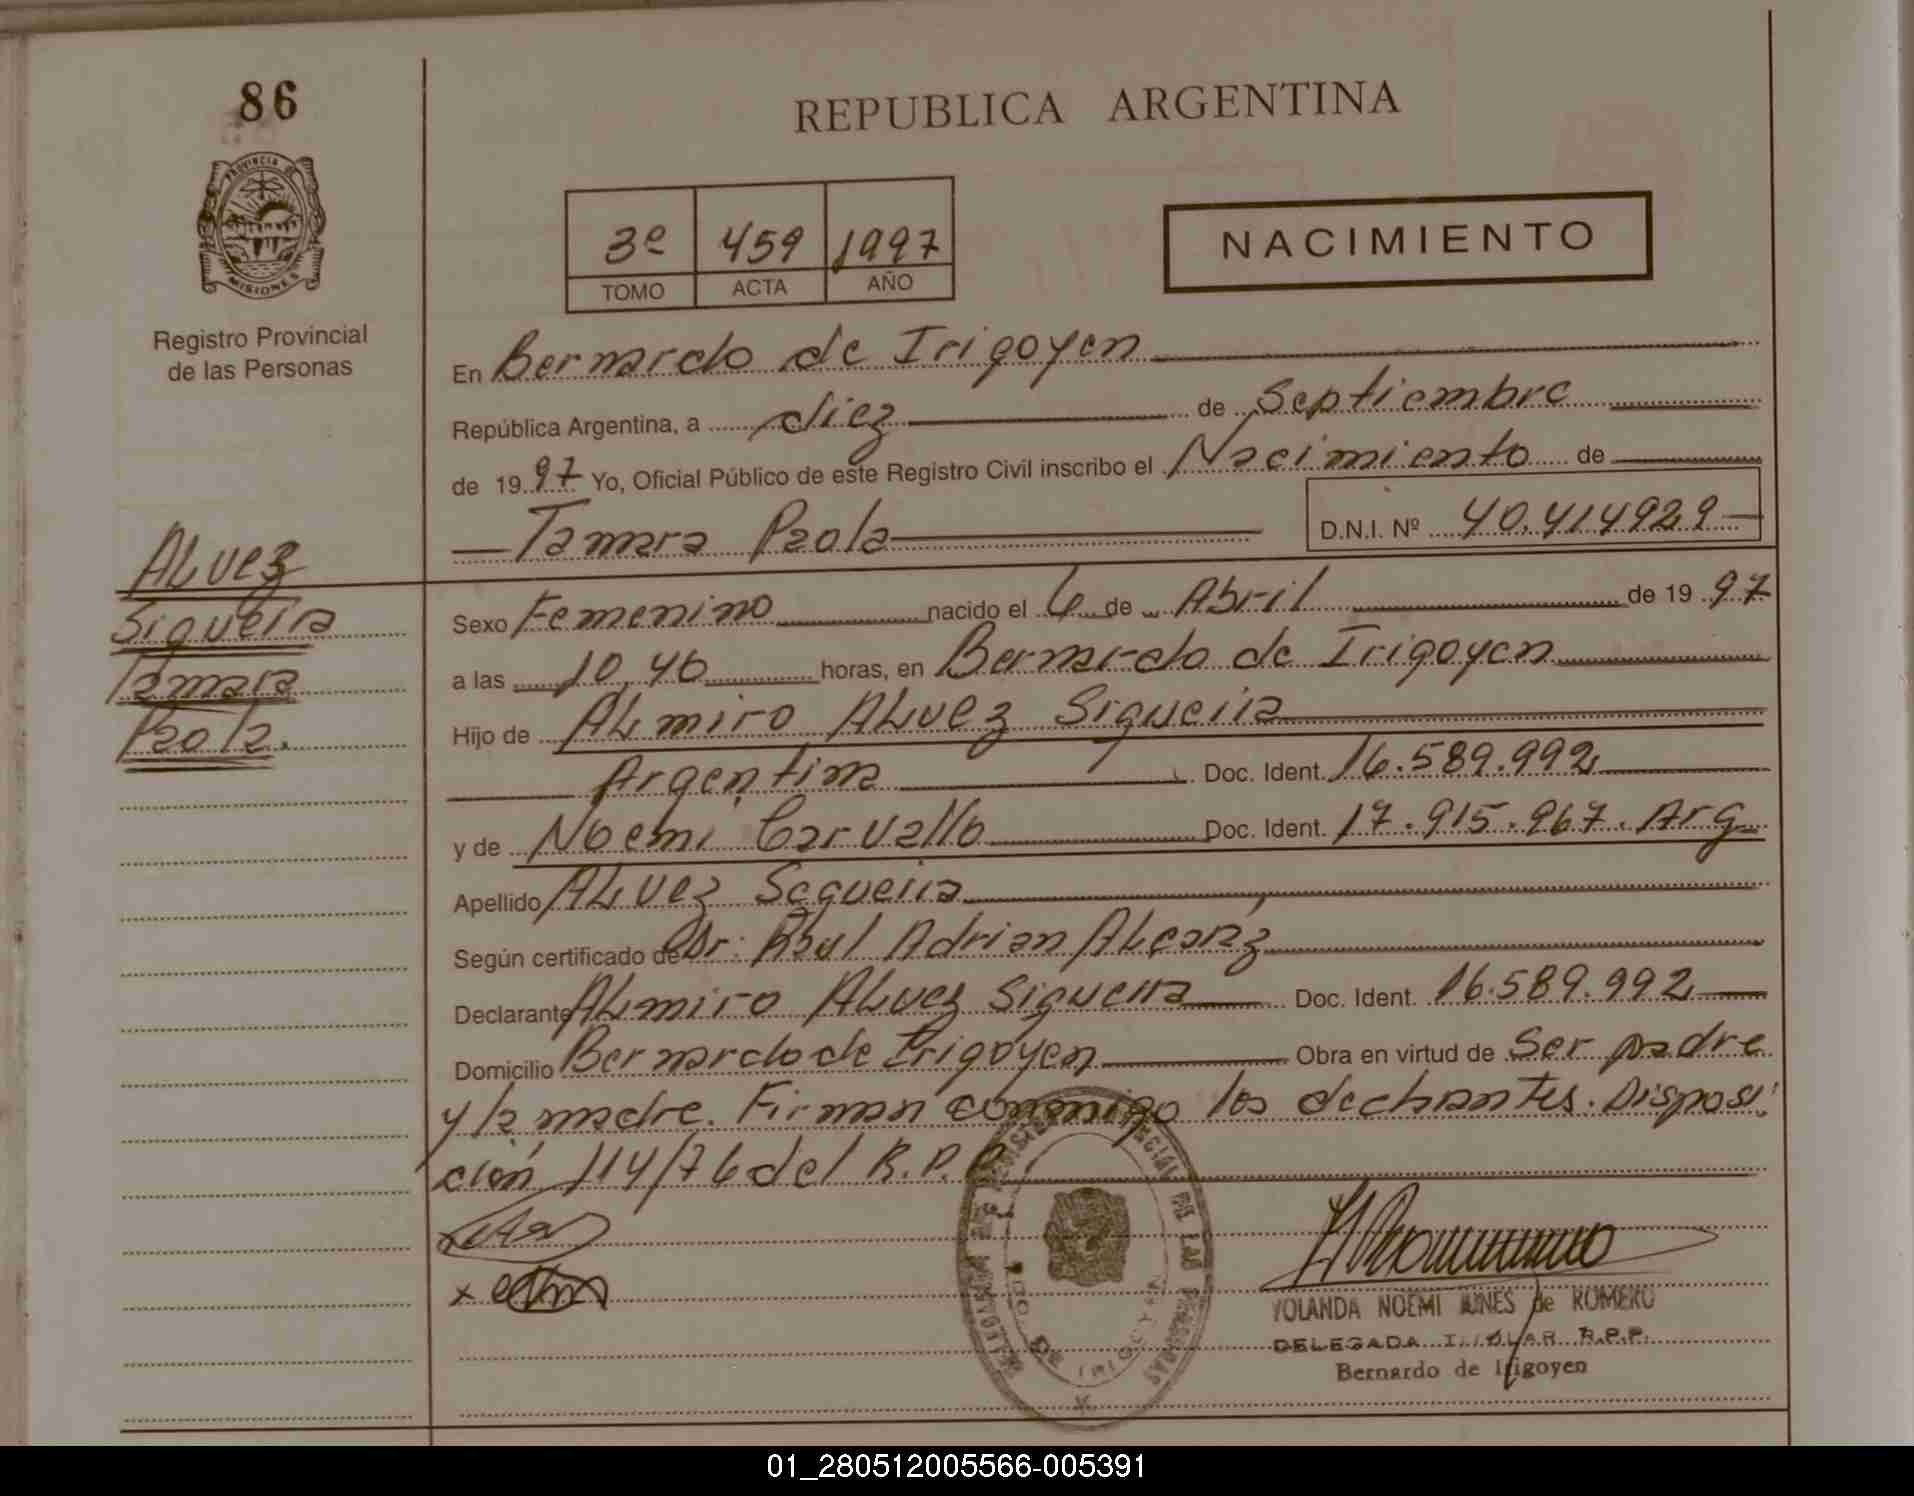 86
REPUBLICA ARGENTINA
PROVINCIA DE
MISIONES
Registro Provincial
de las Personas
3º 459 1997
TOMO ACTA AÑO
NACIMIENTO
En Bernardo de Irigoyen
República Argentina, a diez de Septiembre
de 1997 Yo, Oficial Público de este Registro Civil inscribo el Nacimiento de
Tamara Paola D.N.I. Nº 40.414929
Alvez
Siqueira
Tamara
Paola.
Sexo Femenino nacido el 6 de Abril de 1997
a las 10,40 horas, en Bernardo de Irigoyen
Hijo de Almiro Alvez Siqueira
Argentina Doc. Ident. 16.589.992
y de Noemi Carvallo Doc. Ident. 17.915.967. Arg
Apellido Alvez Sequeira
Según certificado de Dr: Raul Adrian Alcaráz
Declarante Almiro Alvez Siqueira Doc. Ident. 16.589.992
Domicilio Bernardo de Irigoyen Obra en virtud de Ser padre
y la madre. Firman conmigo los declarantes. Disposi
ción 114/76 del R.P.P.
YOLANDA NOEMI de ROMERO
DELEGADA R.P.P.
Bernardo de Irigoyen
01_280512005566-005391